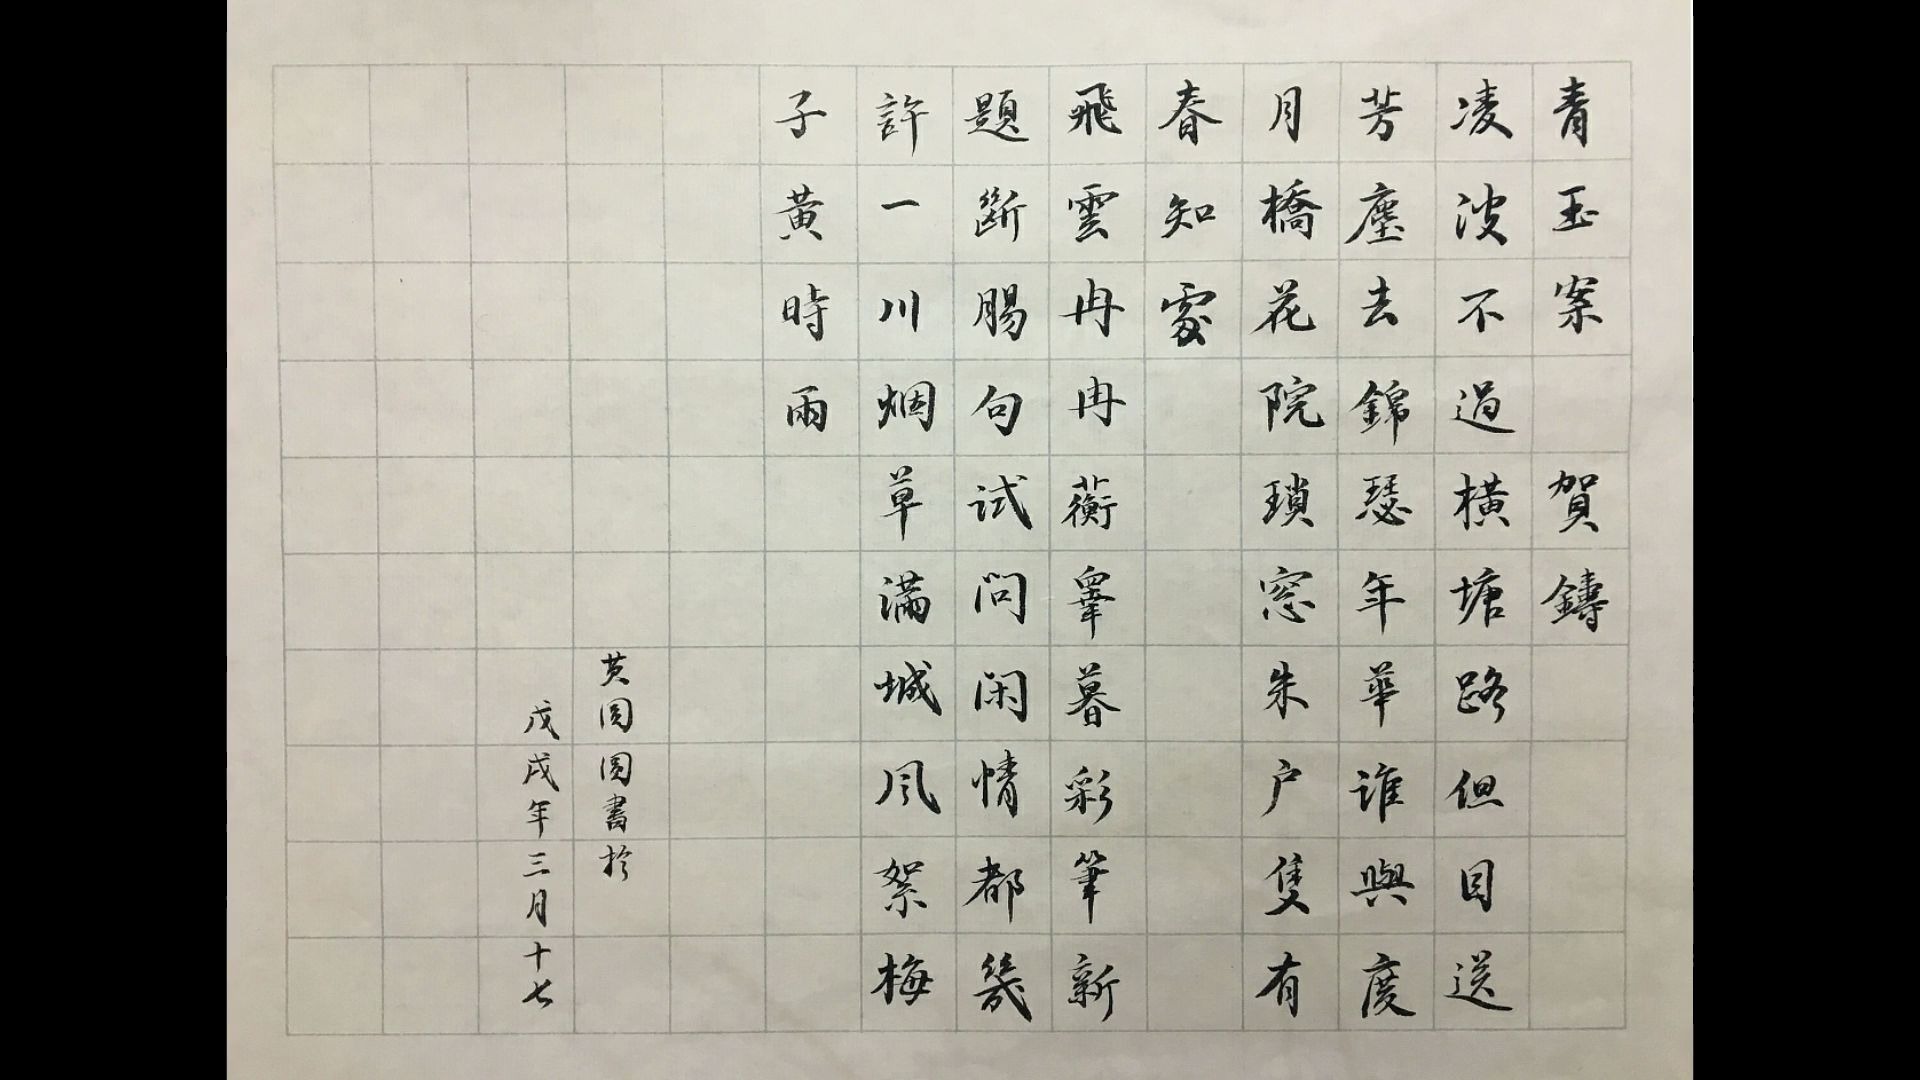 青玉案 賀鑄
凌波不過橫塘路但目送
芳塵去錦瑟年華誰與度
月橋花院瑣窓朱户隻有
春知處
飛雲冉冉蘅皋暮彩筆新
題斷腸句试問闲情都幾
許一川烟草满城风絮梅
子黄時雨
英圆圆書於
戊戌年三月十七